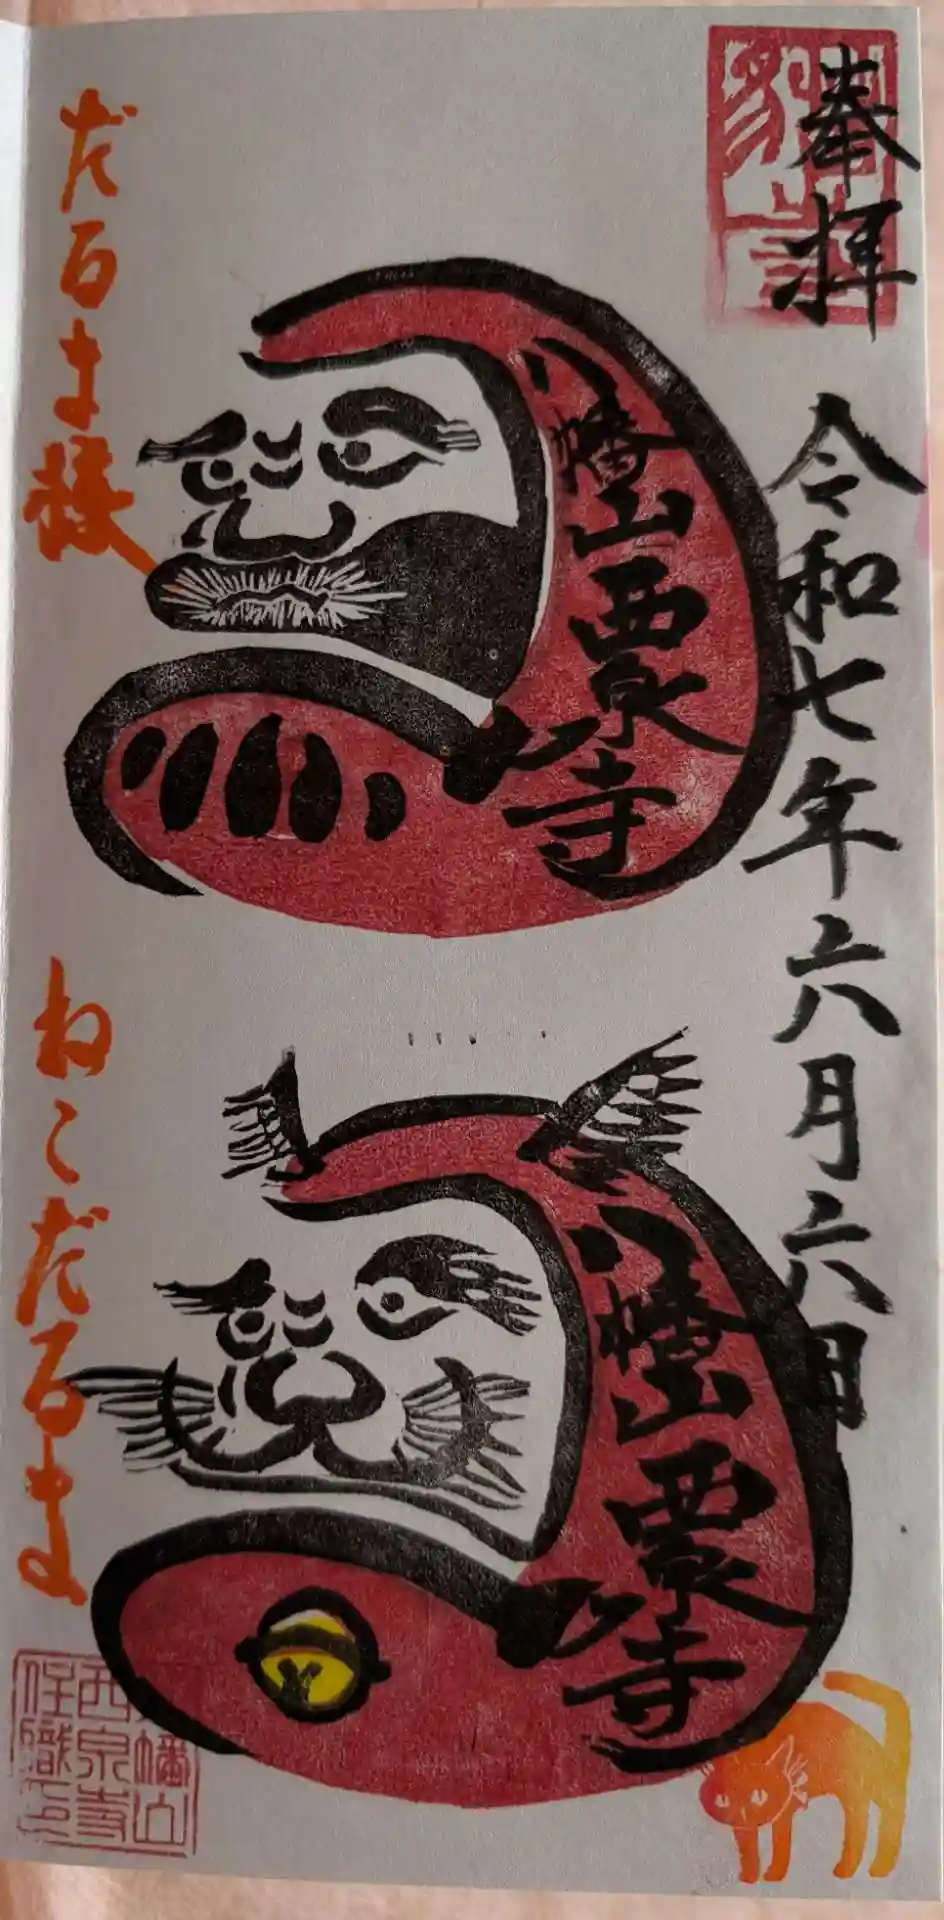 奉拝
令和七年六月六日
八幡山
西泉寺
だるま様
八幡山
西泉寺
ねこだるま
八幡山
西泉寺
住職之印